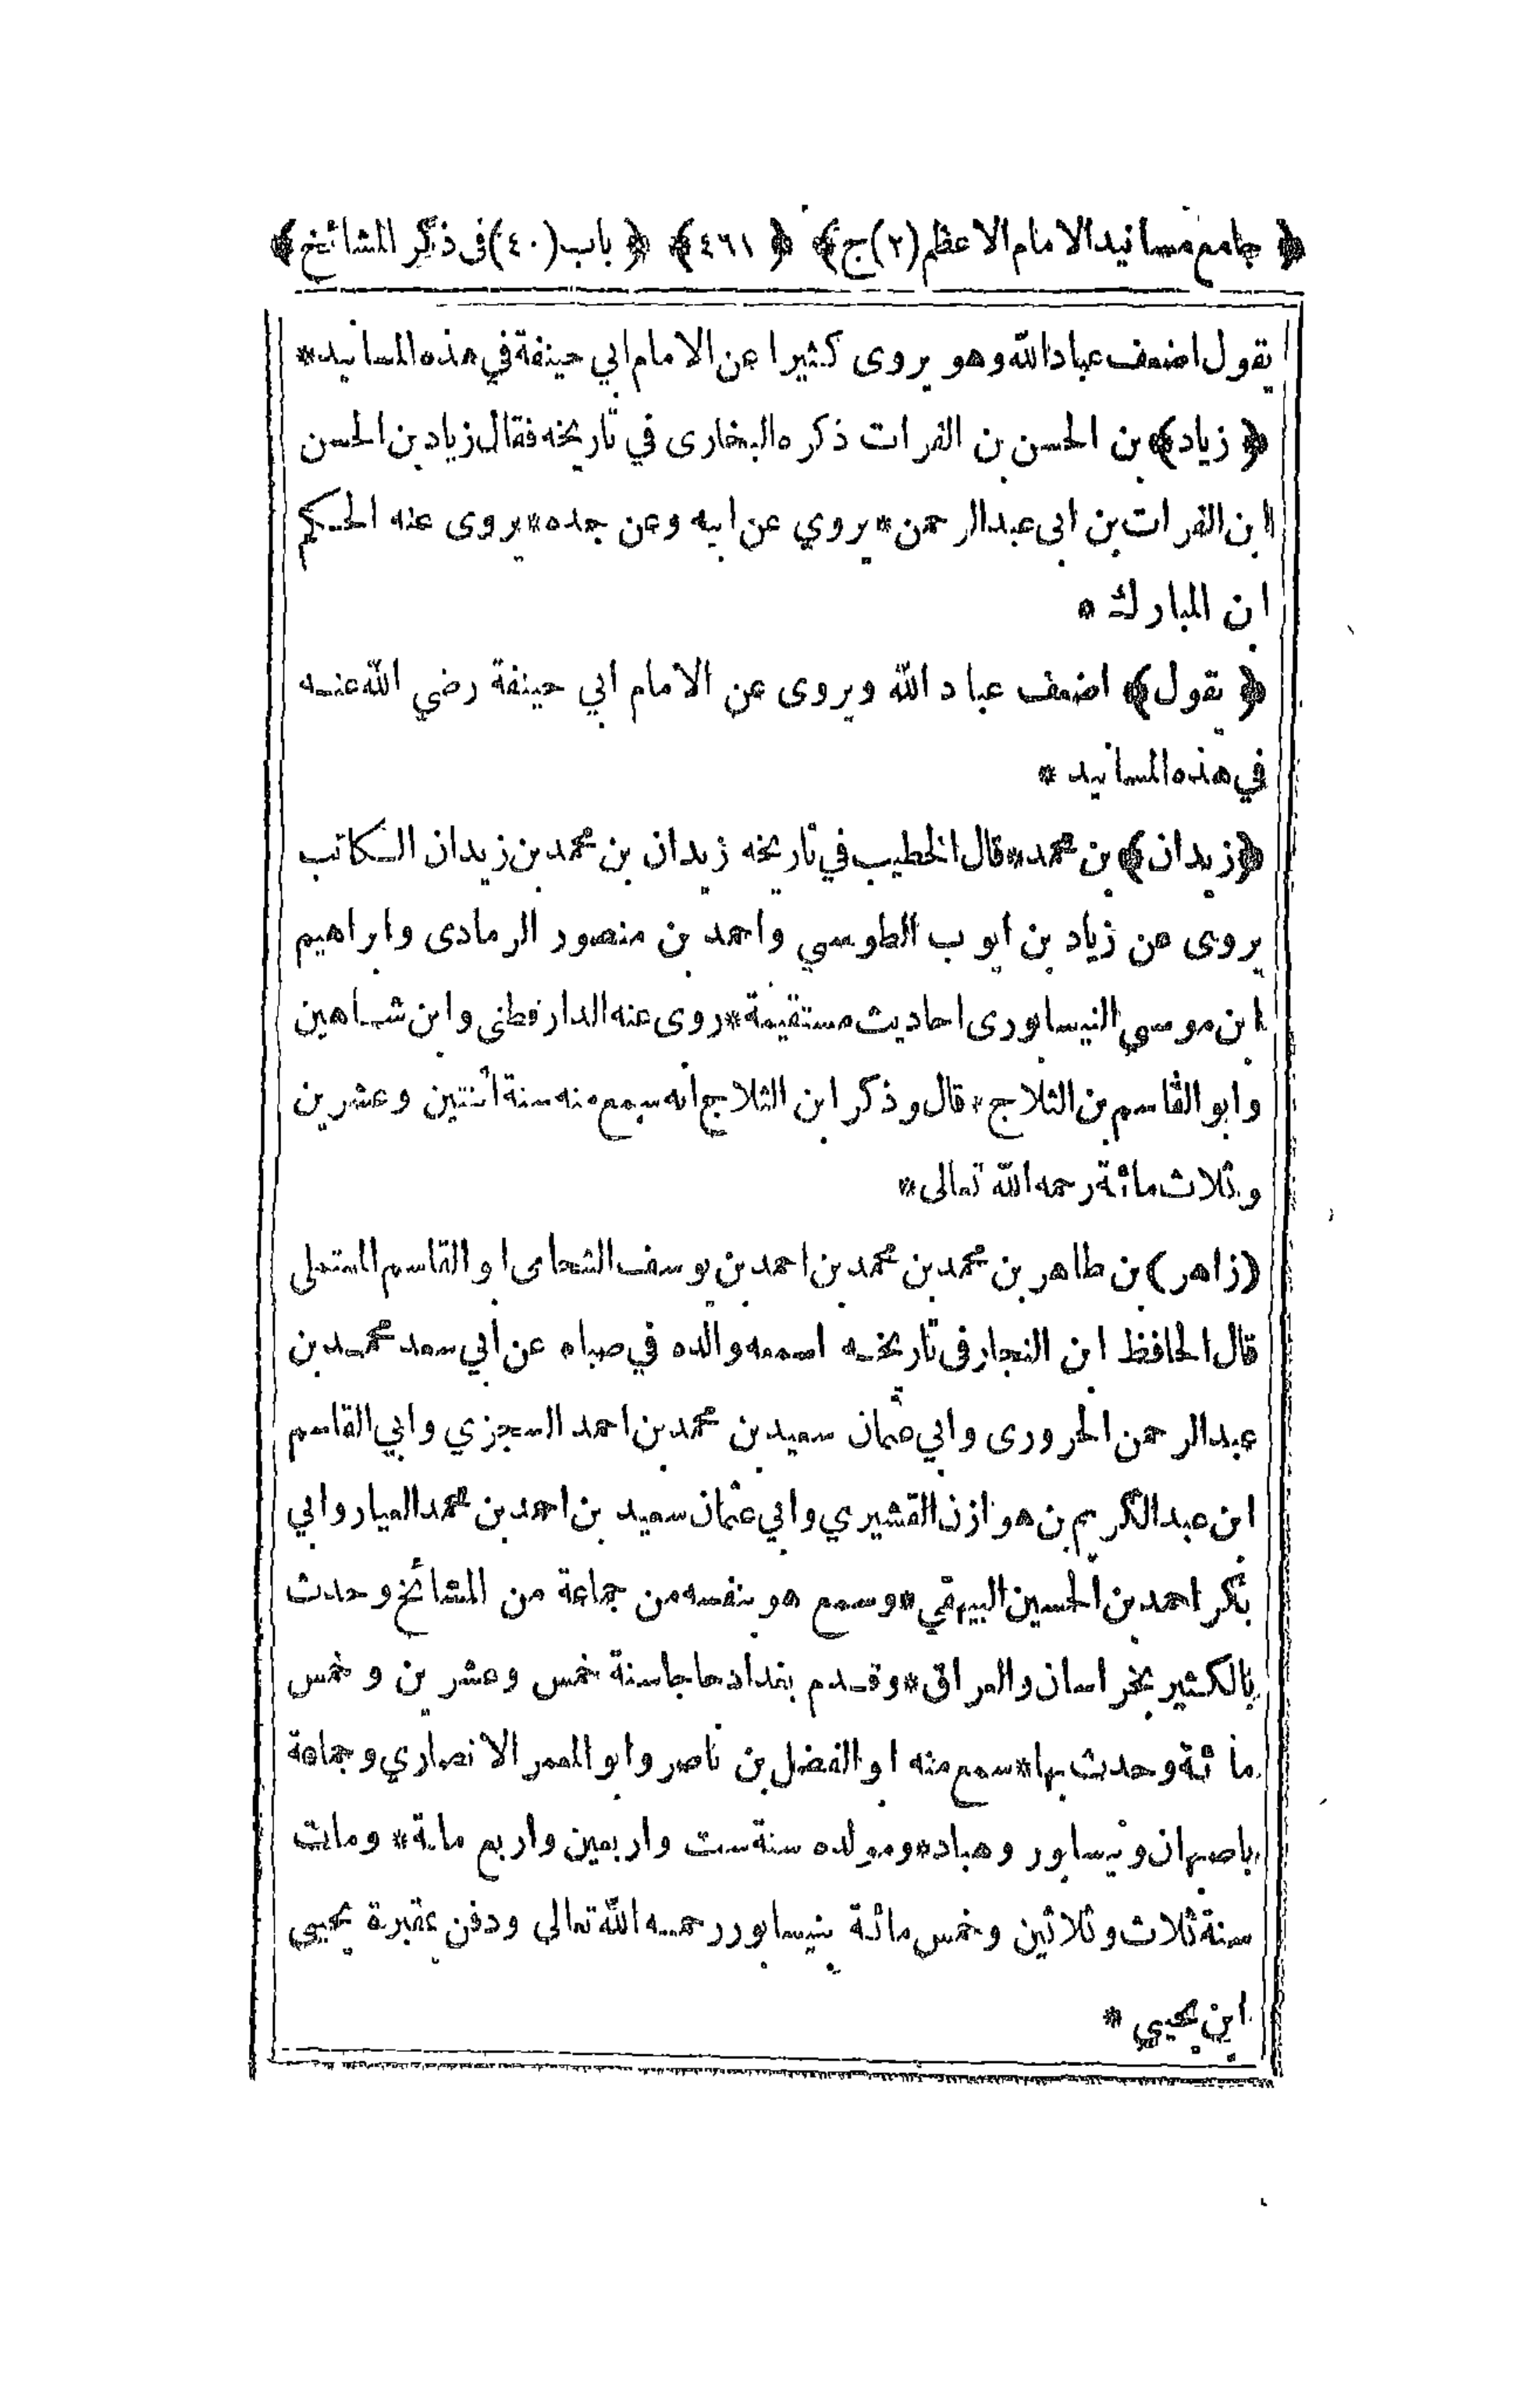 ﴿ جامع مسانيد الامام الاعظم (٢) ج ﴾ ﴿ ٤٦١ ﴾ ﴿ باب (٤٠) فى ذكر المشائخ ﴾
يقول اضعف عباد الله وهو يروى كثيرا عن الامام ابي حنيفة في هذه المسانيد *
﴿ زياد ﴾ بن الحسن بن الفرات ذكره البخارى في تاريخه فقال زياد بن الحسن
ابن الفرات بن ابى عبد الرحمن * يروي عن ابيه وعن جده * يروى عنه الحكم
ابن المبارك *
﴿ يقول ﴾ اضعف عباد الله ويروى عن الامام ابي حنيفة رضي الله عنه
في هذه المسانيد *
﴿ زيدان ﴾ بن محمد * قال الخطيب في تاريخه زيدان بن محمد بن زيدان الكاتب
يروى عن زياد بن ايوب الطوسي واحمد بن منصور الرمادى وابراهيم
ابن موسي النيسابورى احاديث مستقيمة * روى عنه الدارقطنى وابن شاهين
وابو القاسم بن الثلاج * قال وذكر ابن الثلاج انه سمع منه سنة اثنتين وعشرين
وثلاث مائة رحمه الله تعالى *
(زاهر) بن طاهر بن محمد بن محمد بن احمد بن يوسف الشحامى ابو القاسم المستملى
قال الحافظ ابن النجار فى تاريخه اسمعه والده في صباه عن أبي سعد محمد بن
عبد الرحمن الحرورى وابي عثمان سعيد بن محمد بن احمد السجزي وابي القاسم
ابن عبد الكريم بن هوازن القشيري وابي عثمان سعيد بن احمد بن محمد العيار وابي
بكر احمد بن الحسين البيهقي * وسمع هو بنفسه من جماعة من المشائخ وحدث
بالكثير بخراسان والعراق * وقدم بغداد حاجا سنة خمس وعشرين وخمس
مائة وحدث بها * سمع منه ابو الفضل بن ناصر وابو المعمر الانصاري وجماعة
باصبهان ونيسابور وهباد * ومولده سنة ست واربعين واربع ماية * ومات
سنة ثلاث وثلاثين وخمس مائة بنيسابور رحمه الله تعالى ودفن بمقبرة يحيى
ابن يحيي *